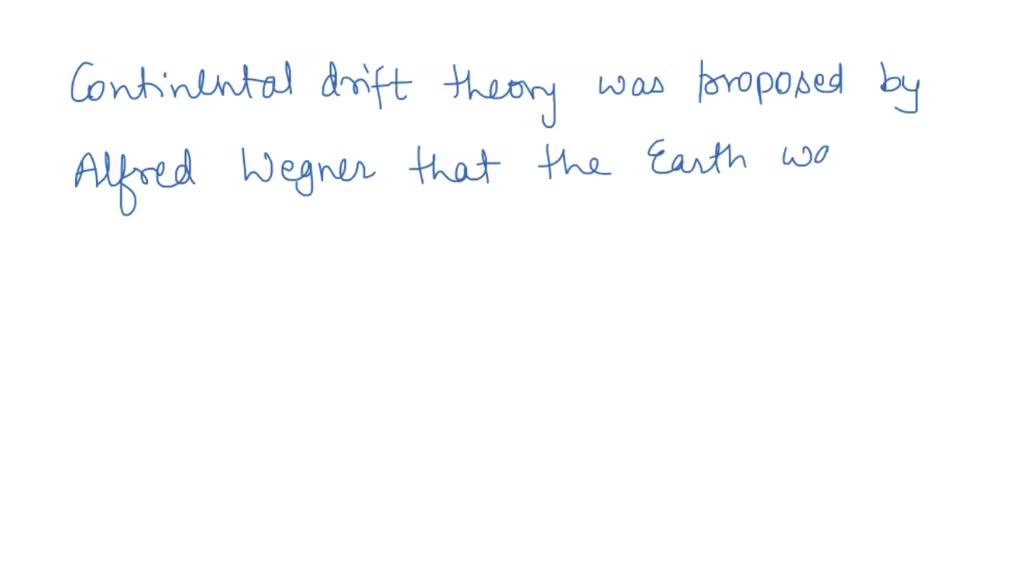 Continental drift theory was proposed by
Alfred Wegner that the Earth wo